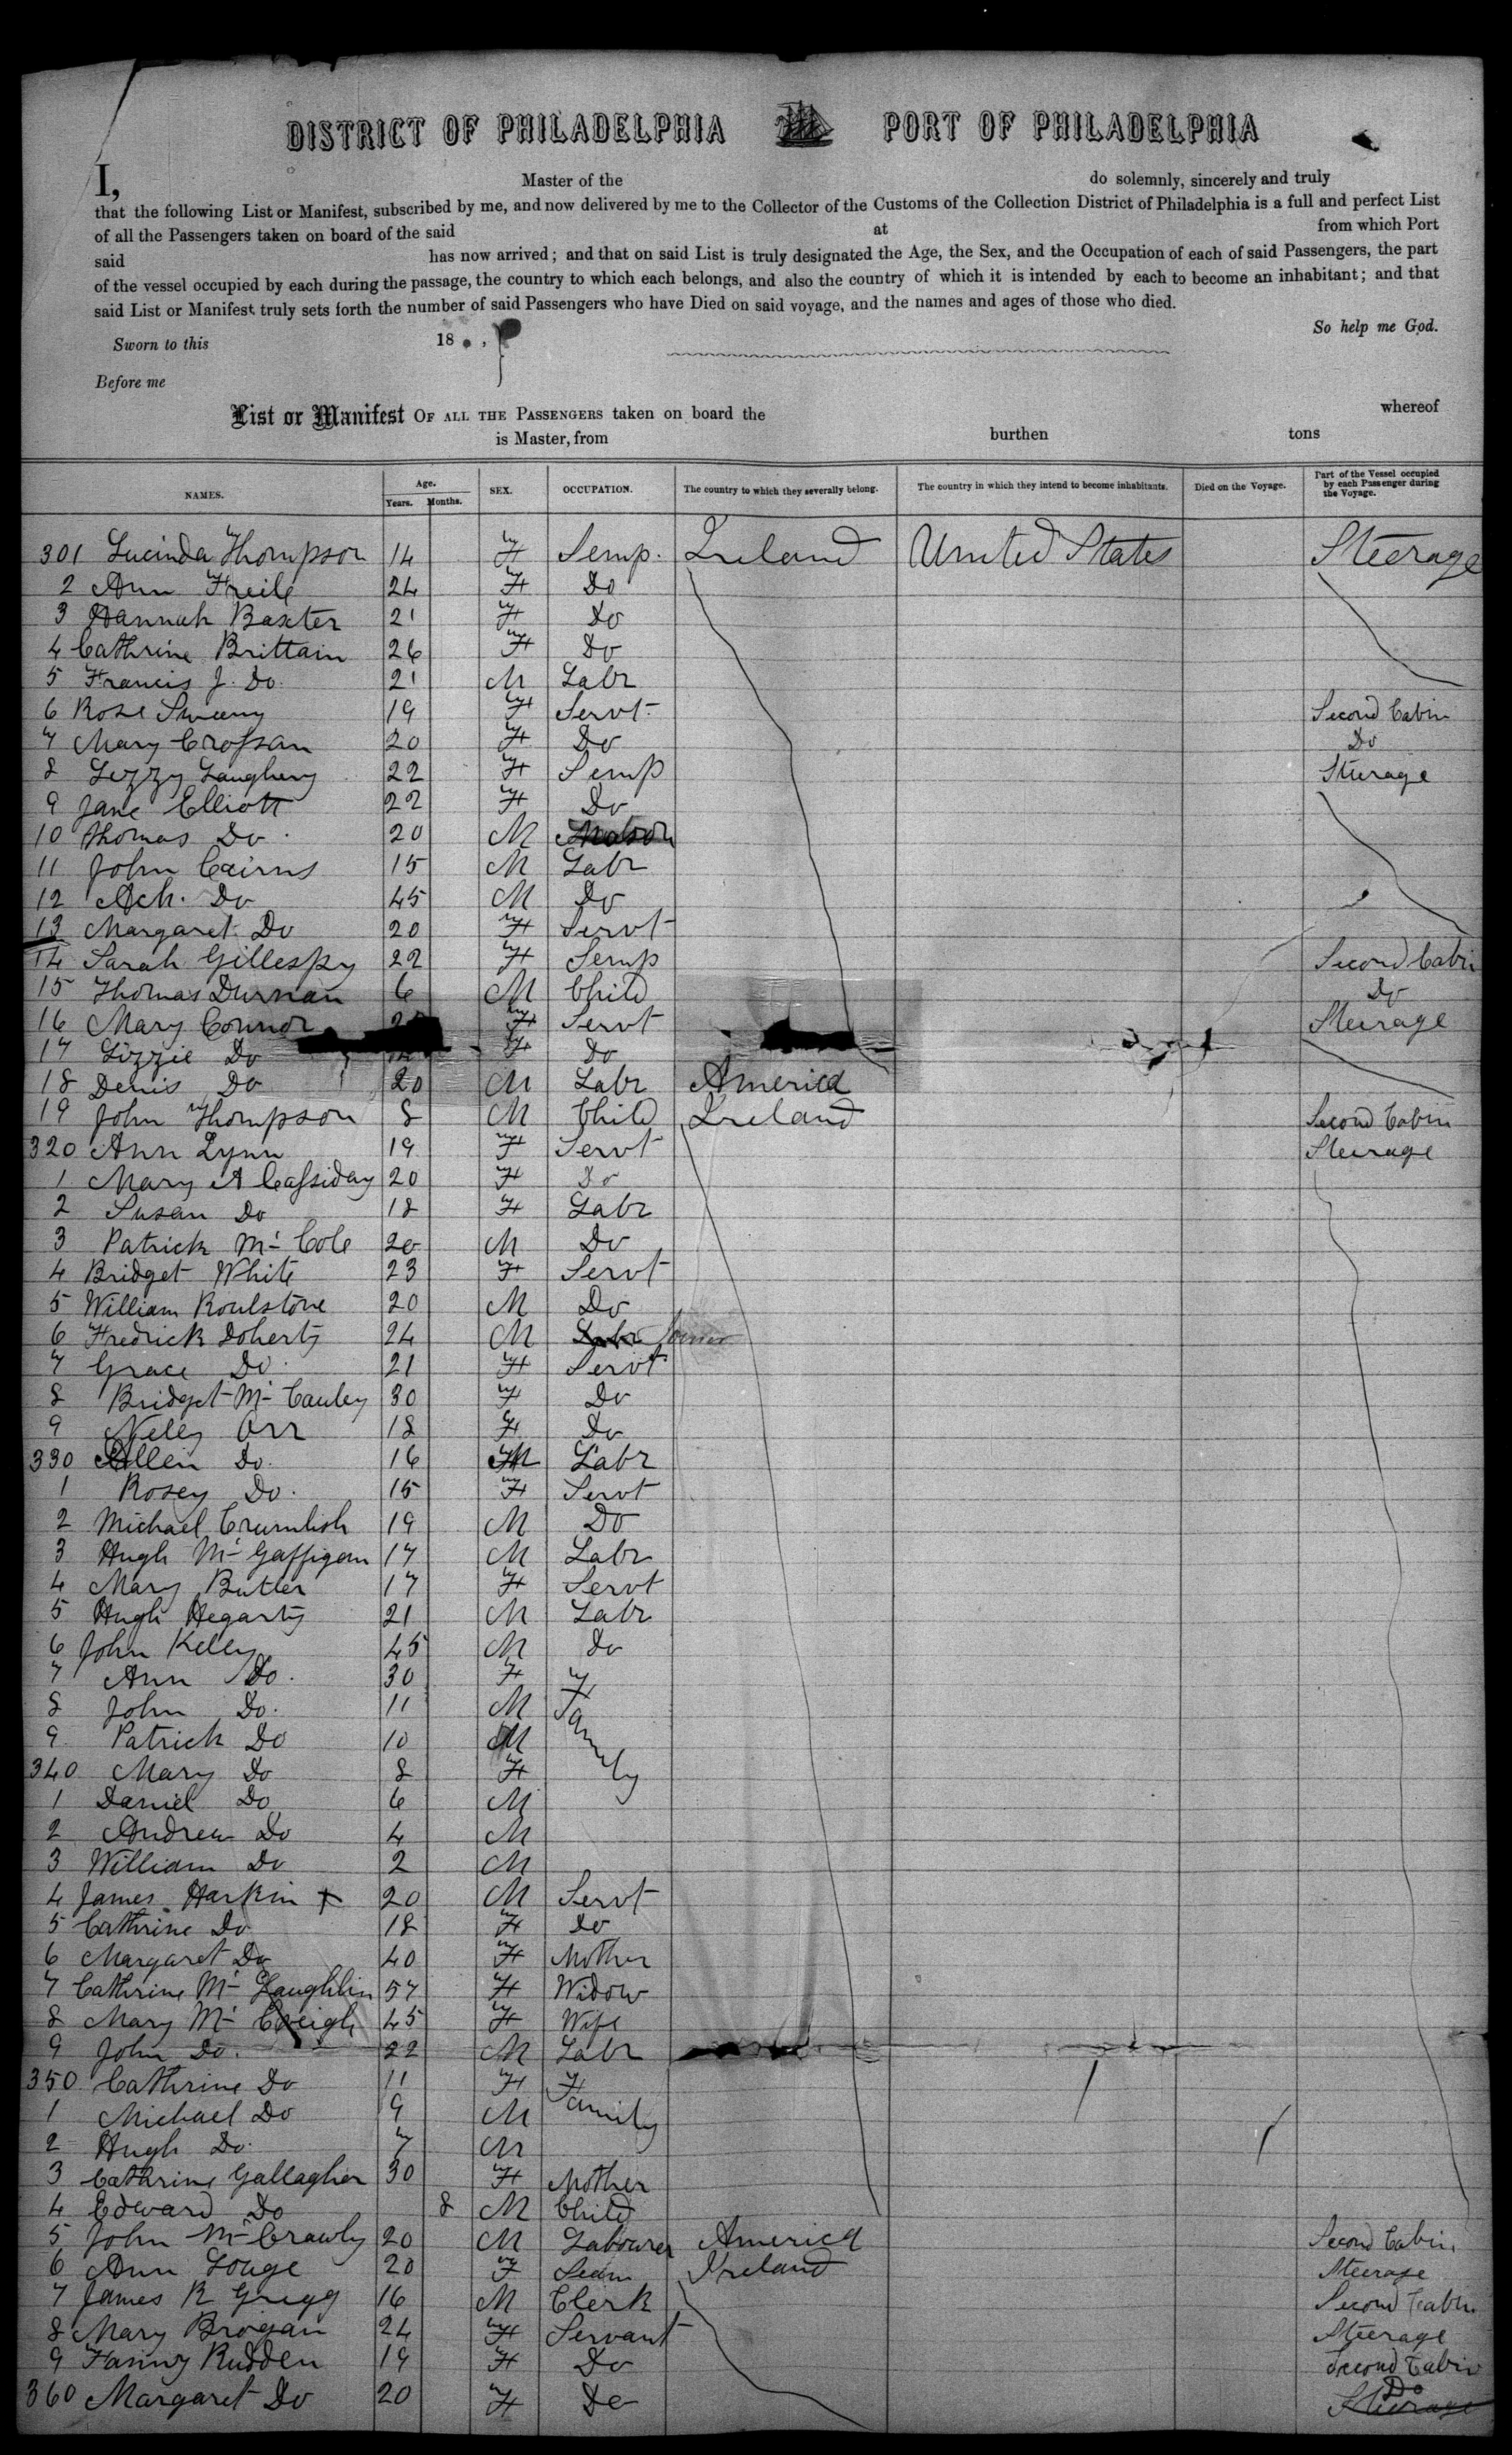 DISTRICT OF PHILADELPHIA PORT OF PHILADELPHIA
I, Master of the do solemnly, sincerely and truly
that the following List or Manifest, subscribed by me, and now delivered by me to the Collector of the Customs of the Collection District of Philadelphia is a full and perfect List
of all the Passengers taken on board of the said at from which Port
said has now arrived; and that on said List is truly designated the Age, the Sex, and the Occupation of each of said Passengers, the part
of the vessel occupied by each during the passage, the country to which each belongs, and also the country of which it is intended by each to become an inhabitant; and that
said List or Manifest truly sets forth the number of said Passengers who have Died on said voyage, and the names and ages of those who died.
So help me God.
Sworn to this 18 ,
Before me
List or Manifest OF ALL THE PASSENGERS taken on board the whereof
is Master, from burthen tons
NAMES. Age. Years. Months. SEX. OCCUPATION. The country to which they severally belong. The country in which they intend to become inhabitants. Died on the Voyage. Part of the Vessel occupied by each Passenger during the Voyage.
301 Lucinda Thompson 14 F Semp. Ireland United States Steerage
2 Ann Freile 24 F Do
3 Hannah Baxter 21 F Do
4 Cathrine Brittain 26 F Do
5 Francis J. Do. 21 M Labr
6 Rose Sweeny 19 F Servt. Second Cabin
7 Mary Crossan 20 F Do Do
8 Lizzy Laughery 22 F Semp Steerage
9 Jane Elliott 22 F Do
10 Thomas Do. 20 M
11 John Cairns 15 M Labr
12 Ach. Do 45 M Do
13 Margaret Do 20 F Servt
14 Sarah Gillespy 22 F Semp Second Cabin
15 Thomas Durnan 6 M Child Do
16 Mary Connor F Servt Steerage
17 Lizzie Do F Do
18 Denis Do 20 M Labr America
19 John Thompson 8 M Child Ireland Second Cabin
320 Ann Lynn 19 F Servt Steerage
1 Mary A Cassiday 20 F Do
2 Susan Do 18 F Labr
3 Patrick Mc Cole 20 M Do
4 Bridget White 23 F Servt
5 William Roulstone 20 M Do
6 Fredrick Doherty 24 M Labr Joiner
7 Grace Do. 21 F Servt
8 Bridget Mc Cauley 30 F Do
9 Nelly Orr 18 F Do
330 Allen Do. 16 M Labr
1 Rosey Do. 15 F Servt
2 Michael Crumlish 19 M Do
3 Hugh Mc Gaffigan 17 M Labr
4 Mary Butler 17 F Servt
5 Hugh Hegarty 21 M Labr
6 John Kelly 45 M Do
7 Ann Do. 30 F Family
8 John Do. 11 M
9 Patrick Do 10 M
340 Mary Do 8 F
1 Daniel Do 6 M
2 Andrew Do 4 M
3 William Do 2 M
4 James Harkin + 20 M Servt
5 Cathrine Do 18 F Do
6 Margaret Do 40 F Mother
7 Cathrine Mc Laughlin 57 F Widow
8 Mary Mc Creigh 45 F Wife
9 John Do. 22 M Labr
350 Cathrine Do 11 F Family
1 Michael Do 9 M
2 Hugh Do. 7 M
3 Cathrine Gallagher 30 F Mother
4 Edward Do 8 M Child
5 John Mc Crawly 20 M Labourer America Second Cabin
6 Ann Louge 20 F Seam Ireland Steerage
7 James R Gregg 16 M Clerk Second Cabin
8 Mary Brogan 24 F Servant Steerage
9 Fanny Rudden 19 F Do Second Cabin
360 Margaret Do 20 F Do Do Steerage